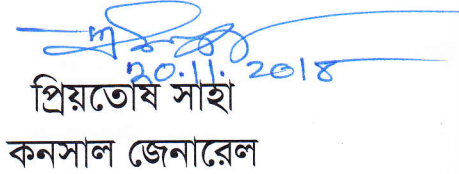 20.11.2018
প্রিয়তোষ সাহা
কনসাল জেনারেল